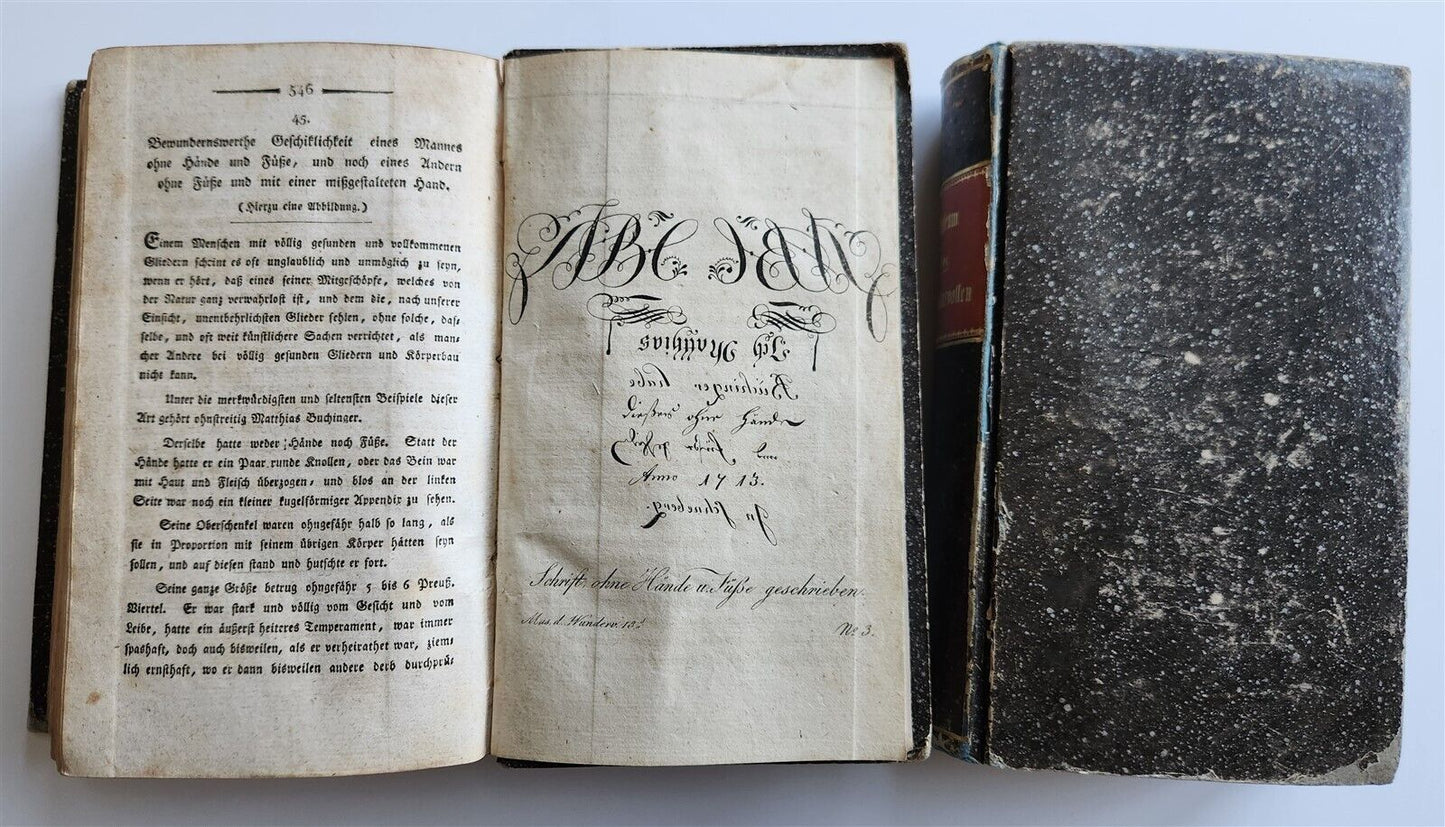 546
45.
Bewundernswerthe Geſchiklichkeit eines Mannes
ohne Hände und Füße, und noch eines Andern
ohne Füße und mit einer mißgeſtalteten Hand.
(Hierzu eine Abbildung.)
Einem Menſchen mit völlig geſunden und vollkommenen
Gliedern ſcheint es oft unglaublich und unmöglich zu ſeyn,
wenn er hört, daß eines ſeiner Mitgeſchöpfe, welches von
der Natur ganz verwahrlost iſt, und dem die, nach unſerer
Einſicht, unentbehrlichſten Glieder fehlen, ohne ſolche, daſ-
ſelbe, und oft weit künſtlichere Sachen verrichtet, als man-
cher Andere bei völlig geſunden Gliedern und Körperbau
nicht kann.
Unter die merkwürdigſten und ſeltenſten Beiſpiele dieſer
Art gehört ohnſtreitig Matthias Buchinger.
Derſelbe hatte weder Hände noch Füße. Statt der
Hände hatte er ein Paar runde Knollen, oder das Bein war
mit Haut und Fleiſch überzogen, und blos an der linken
Seite war noch ein kleiner kugelförmiger Appendix zu ſehen.
Seine Oberſchenkel waren ohngefähr halb ſo lang, als
ſie in Proportion mit ſeinem übrigen Körper hätten ſeyn
ſollen, und auf dieſen ſtand und hutſchte er fort.
Seine ganze Größe betrug ohngefähr 5 bis 6 Preuß.
Viertel. Er war ſtark und völlig vom Geſicht und vom
Leibe, hatte ein äußerſt heiteres Temperament, war immer
ſpashaft, doch auch bisweilen, als er verheirathet war, ziem-
lich ernſthaft, wo er dann bisweilen andere derb durchprü-
ABC ABC
Ich Matthias
Büchinger habe
dießers ohne Hände
und
Anno 1713.
In Schneberg.
Schrift, ohne Hände u. Füße geschrieben.
Mus. d. Wunderv. No 3.
vollen